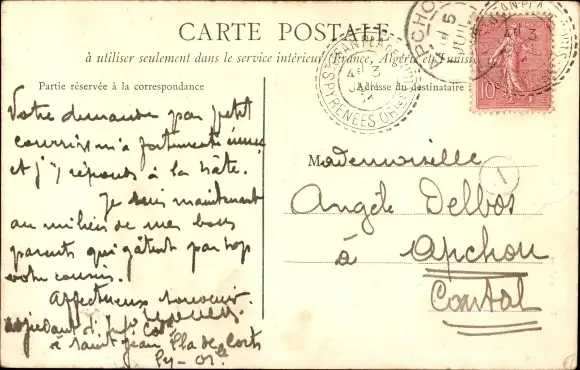 CARTE POSTALE
à utiliser seulement dans le service intérieur (France, Algérie et Tunisie)
Partie réservée à la correspondance
Adresse du destinataire
Votre demande par petit
courrier m'a fortement
et j'y réponds à la hâte.
Je suis maintenant
au milieu de mes bons
parents qui gâtent par trop
votre cousin.
Affectueux souvenir.
adjudant d'Inf. Cole
à Saint Jean Pla de Corts
Py-Or.les
Mademoiselle
Angèle Delbos
à Apchon
Cantal
1
APCHON
5
JUIL
ST JEAN PLA DE CORTS
4 3
PYRENEES ORIENTALES
10